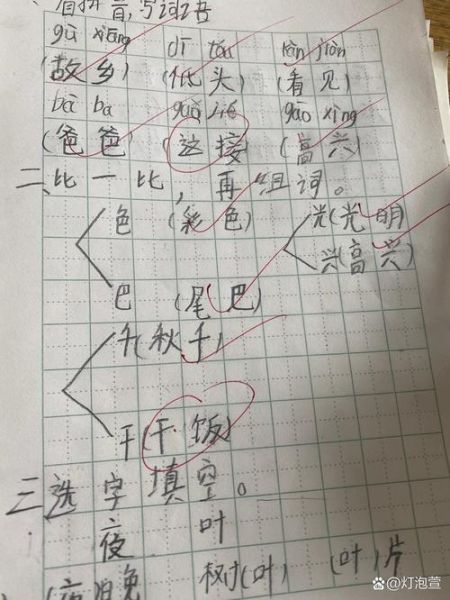 看拼音,写词语
gù xiāng dī tóu kàn jiàn
(故乡) (低头) (看见)
bà ba guò jié gāo xìng
(爸爸) (这接) (高兴)
二、比一比,再组词。
色 (彩色) 光(光明)
兴(高兴)
巴 (尾巴)
千(秋千)
干(干饭)
三选字填空。
夜 叶
晚 树(叶) (叶)片
@灯泡萱